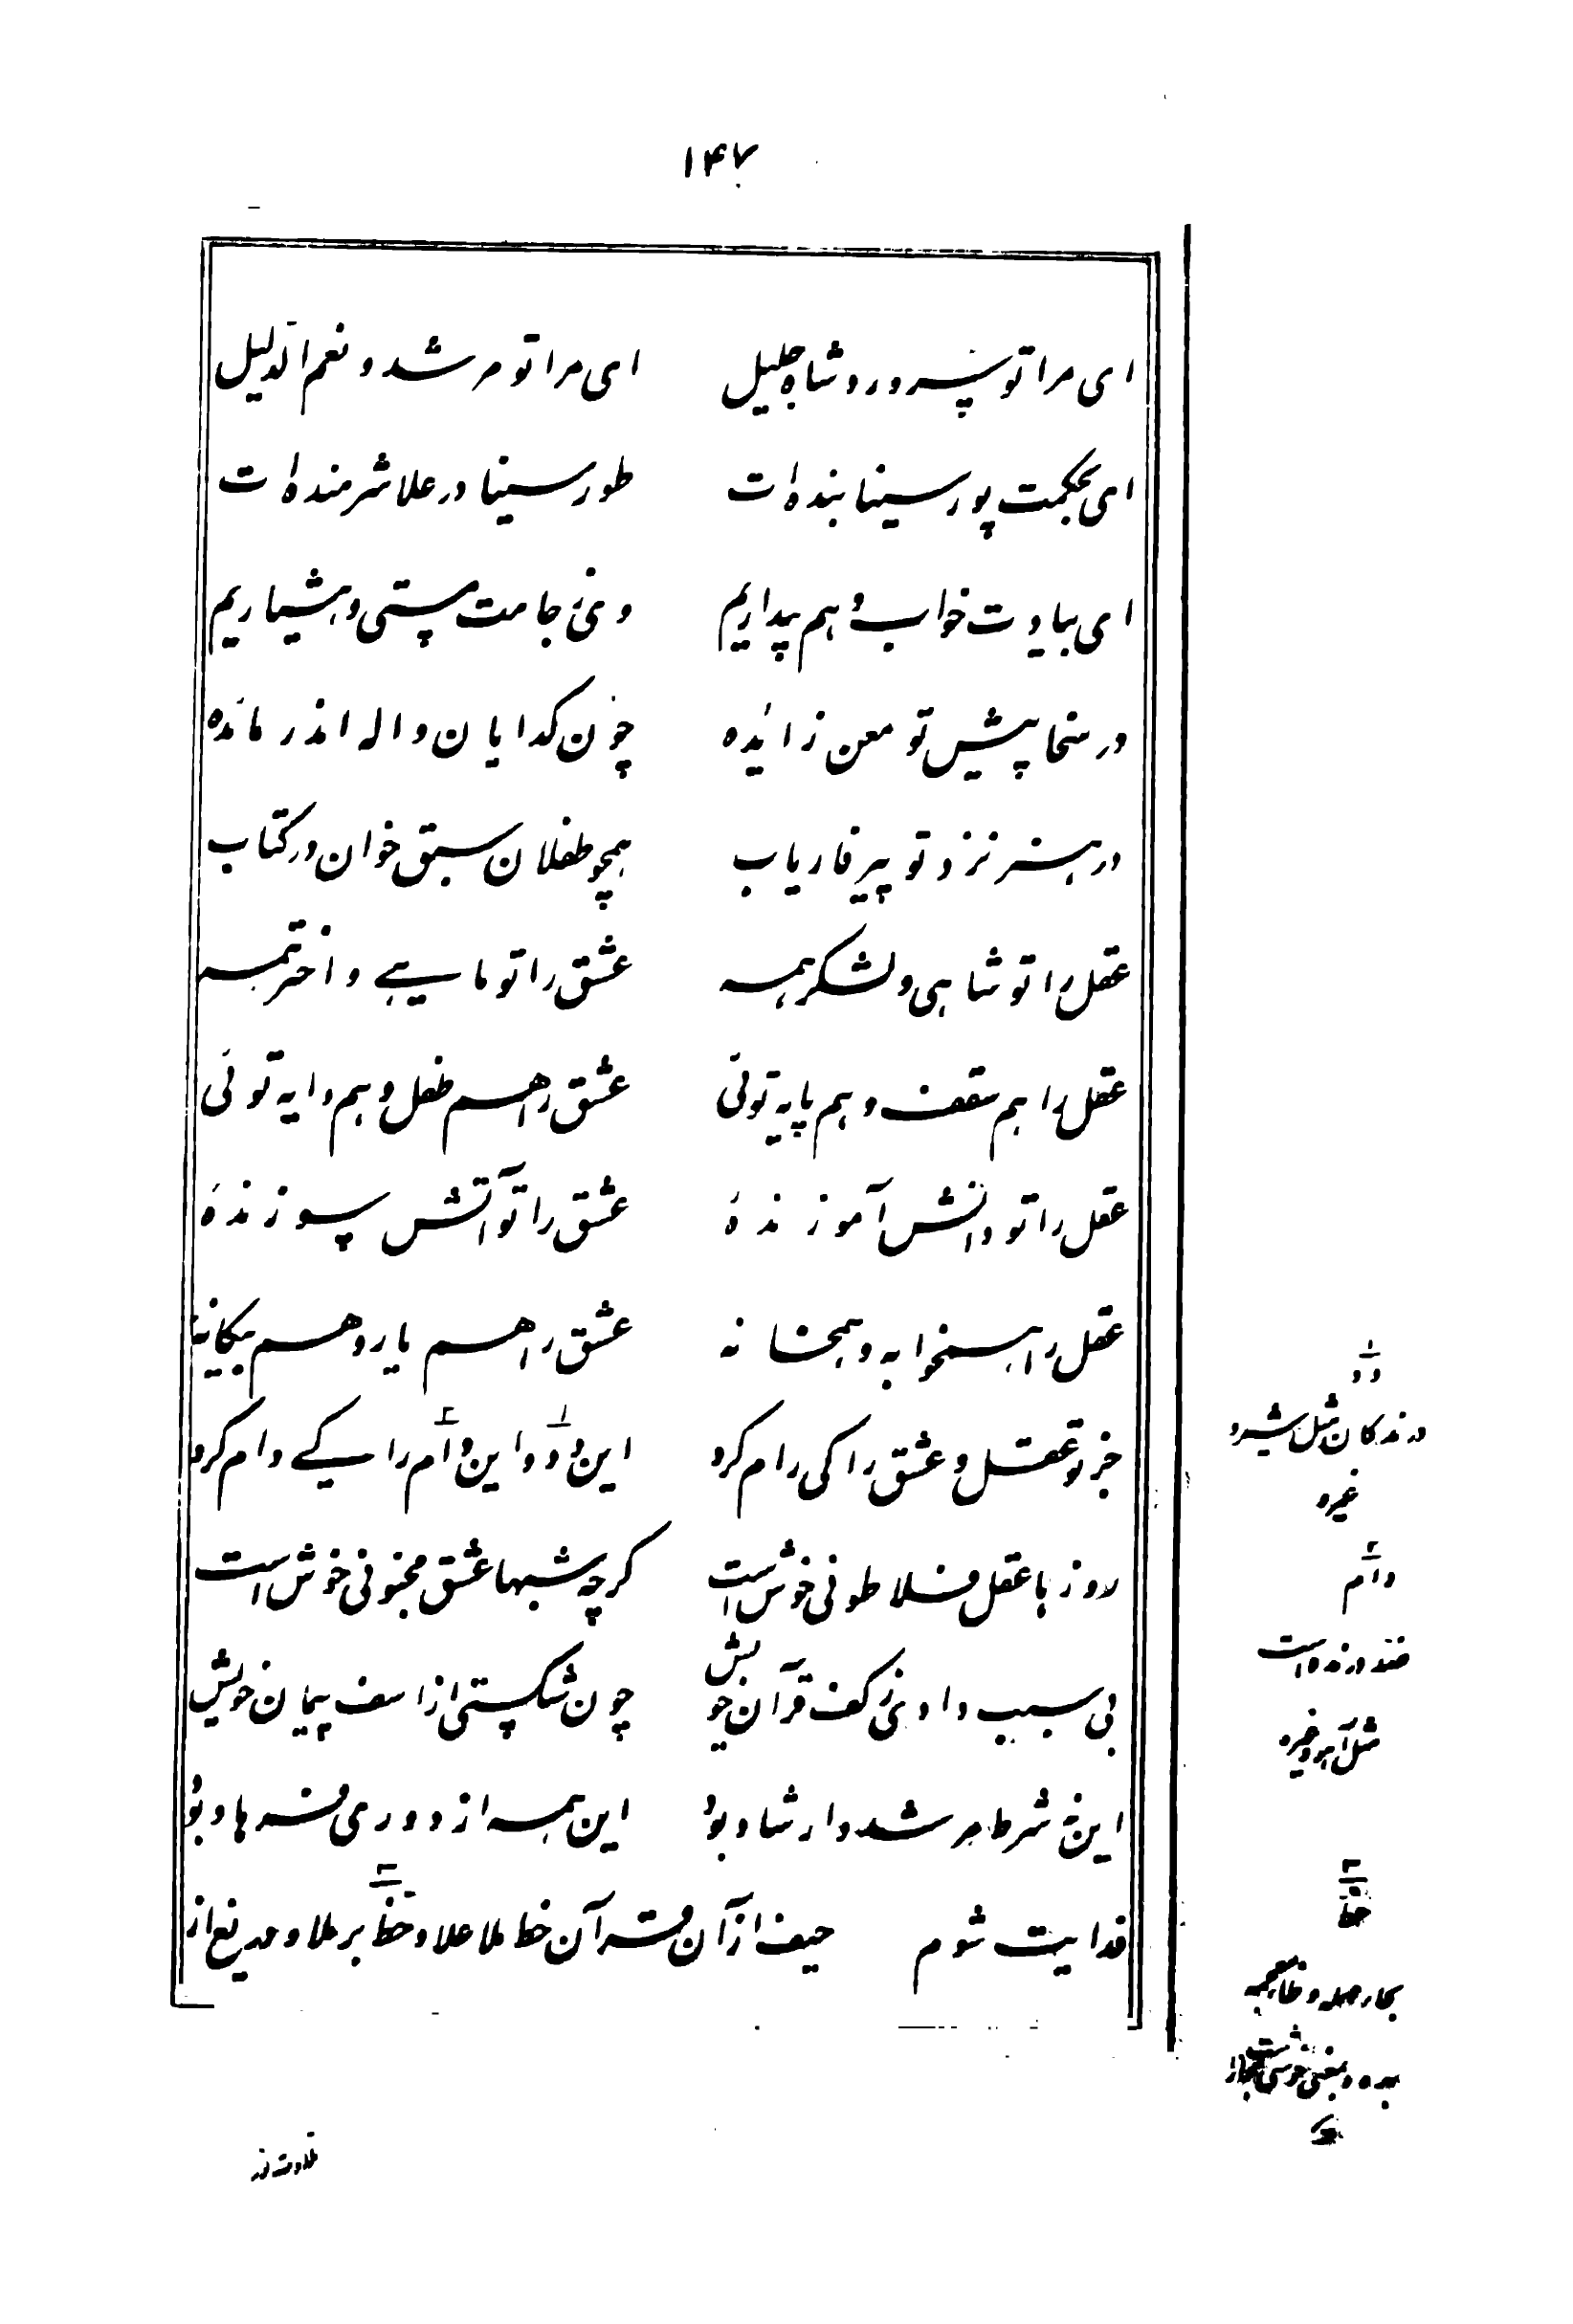 ۱۴۷
ای مرا تو پیر و رد و شاه جلیل ای مرا تو مرشد و نعم الدلیل
ای بحکمت پور سینا بندهٔ ات طور سینا در علا شرمندهٔ ات
ای بیادت خواب و هم بیداریم وی ز جامت مستی و هشیاریم
در سخا پیش تو معن زائده چون کدایان واله اندر مائده
در هنر نزد تو پیر فاریاب همچو طفلان سبق خوان در کتاب
عقل را تو شاهی و لشکر همه عشق را تو ماهی و اختر همه
عقل را هم سقف و هم پایه توئی عشق را هم طفل و هم دایه توئی
عقل را تو دانش آموزندهٔ عشق را تو آتش سوزندهٔ
عقل را همخوابه و همخانهٔ عشق را هم یار و هم بیکانهٔ
جز تو عقل و عشق را کی رام کرد این دد و این دام را کی دام کرد
روز با عقل فلاطونی خوش است کرچه شبها عشق مجنونی خوش است
بی سبب دادی ز کف قرآن خویش چون شکستی از اسف پیمان خویش
این نه شرط مرشد و ارشاد بود این همه از دوری فرهاد بود
فدایت شوم حیف از آن قرآن خط ملا علا و حظّ بر ملا و دریغ از
۱ دد
درندکان مثل شیر و
غیره
۲ دام
ضد درنده است
مثل آهو و غیره
۳ حظّ
بحاء مهمله و ظاء معجمه
بهره و بمعنی خوشی است مجازا
تلاوت نه